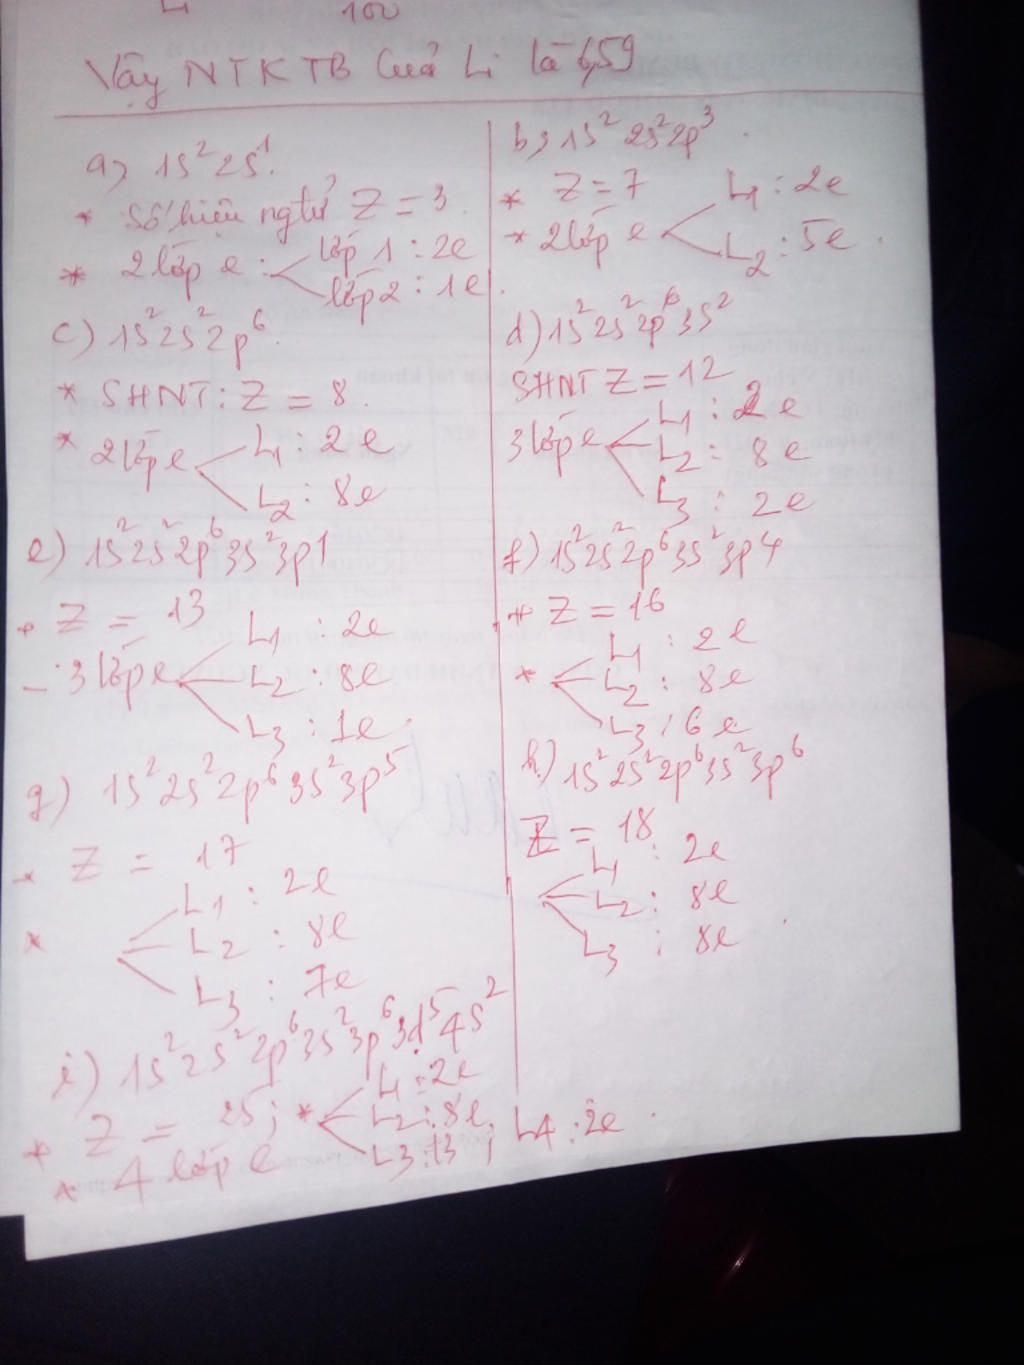 Li 100
Vậy NTKTB Của Li là 6,59
a) 1s² 2s¹.
* Số hiệu ngtử Z = 3.
* 2 lớp e : lớp 1 : 2e
lớp 2 : 1e.
b) 1s² 2s² 2p³.
* Z = 7
* 2 lớp e L1 : 2e
L2 : 5e.
c) 1s² 2s² 2p⁶.
* SHNT : Z = 8.
* 2 lớp e L1 : 2e
L2 : 8e
d) 1s² 2s² 2p⁶ 3s²
SHNT Z = 12
3 lớp e L1 : 2e
L2 : 8e
L3 : 2e
e) 1s² 2s² 2p⁶ 3s² 3p1
* Z = 13
- 3 lớp e L1 : 2e
L2 : 8e
L3 : 1e
f) 1s² 2s² 2p⁶ 3s² 3p4
* Z = 16
* L1 : 2e
L2 : 8e
L3 : 6e
g) 1s² 2s² 2p⁶ 3s² 3p⁵
* Z = 17
* L1 : 2e
L2 : 8e
L3 : 7e
h) 1s² 2s² 2p⁶ 3s² 3p⁶
Z = 18
L1 : 2e
L2 : 8e
L3 : 8e
i) 1s² 2s² 2p⁶ 3s² 3p⁶ 3d⁵ 4s²
* Z = 25 ; * L1 : 2e
L2 : 8e ; L4 : 2e.
* 4 lớp e L3 : 13 ;